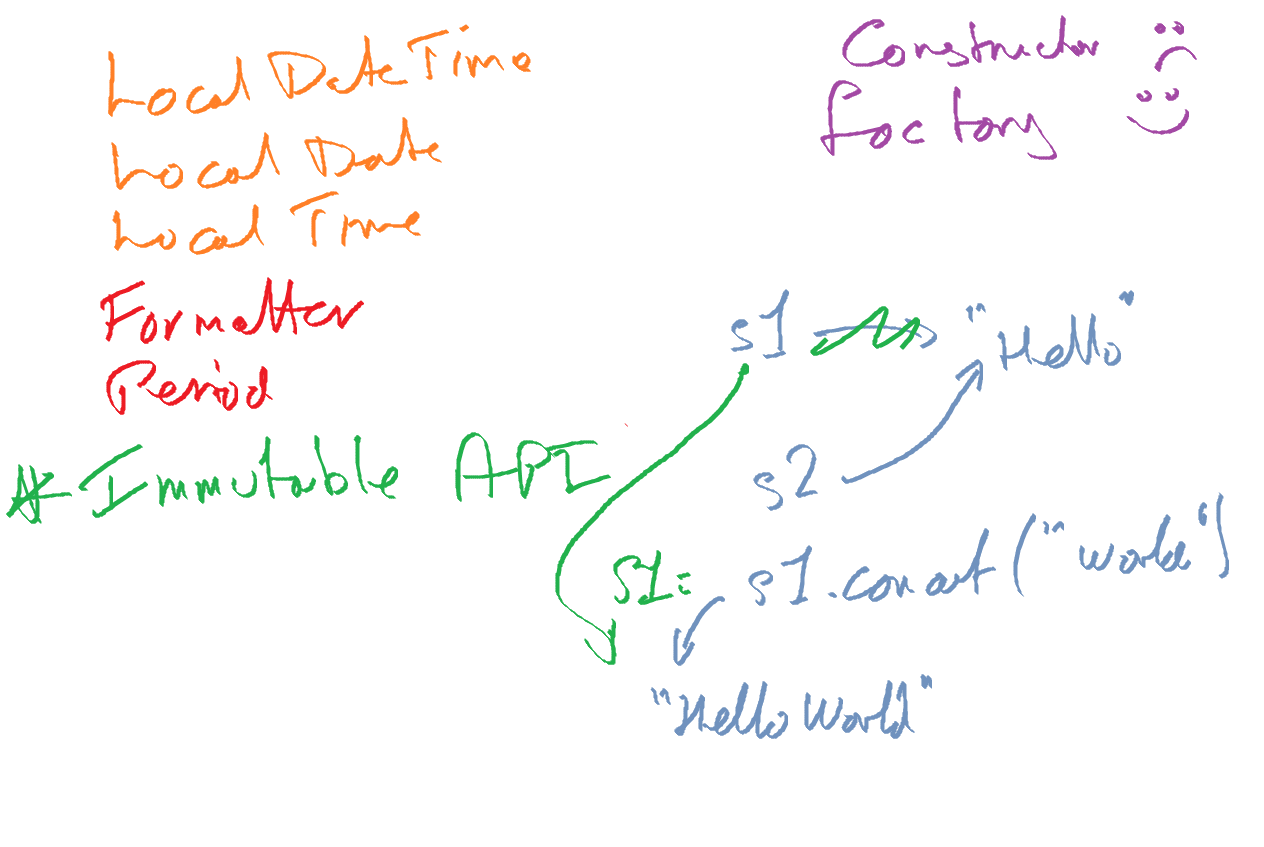 Local DateTime
Local Date
Local Time
Formatter
Period
* Immutable API
Constructor :(
factory :)
s1 "Hello"
s2
S1= s1.concat("world")
"Hello World"